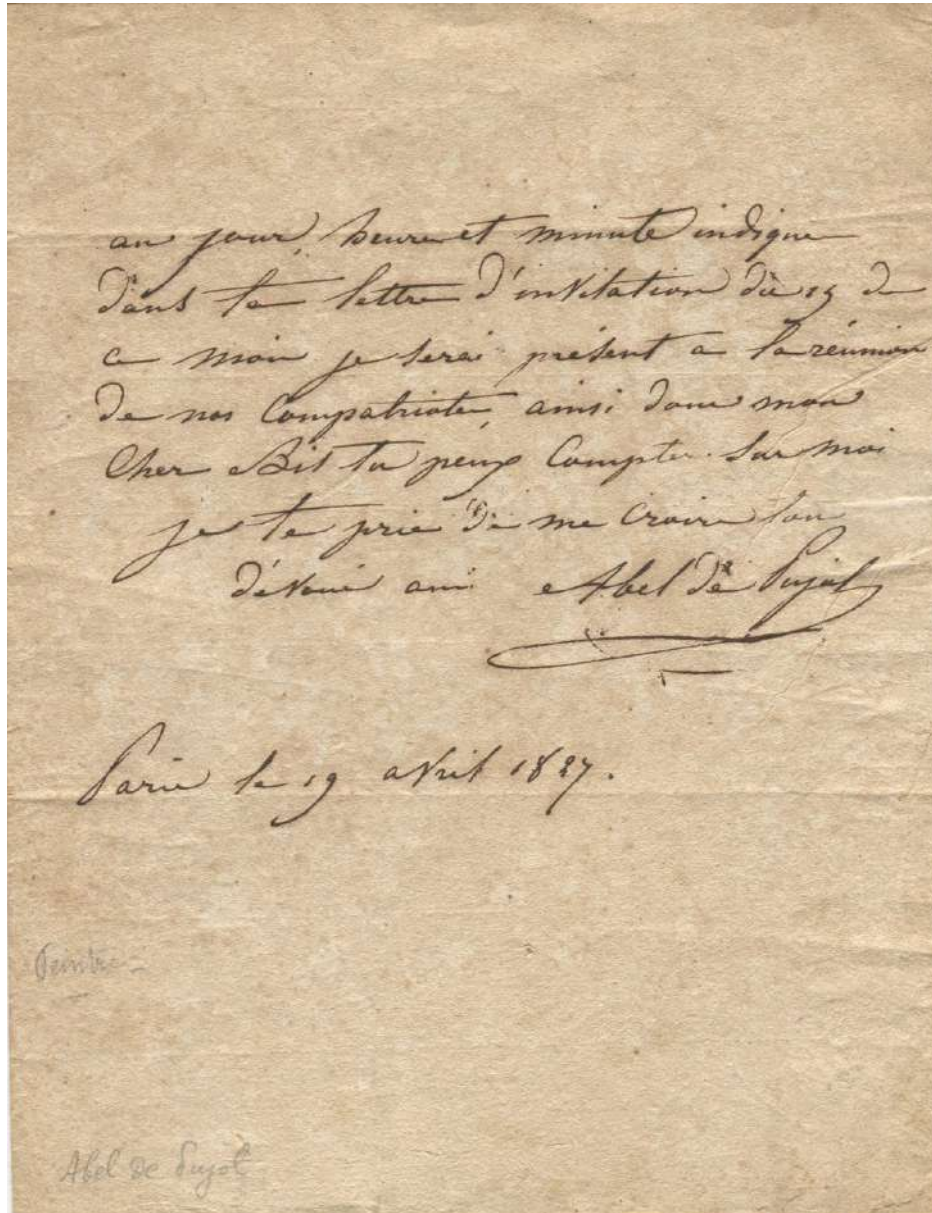 au jour, heure et minute indiqué
dans ta lettre d'invitation du 15 de
ce mois je serai présent a la réunion
de nos Compatriotes, ainsi donc mon
Cher Bis tu peux Compter sur moi
je te prie de me Croire ton
dévoué ami Abel de Pujol
Paris le 19 avril 1827.
Peintre
Abel de Pujol